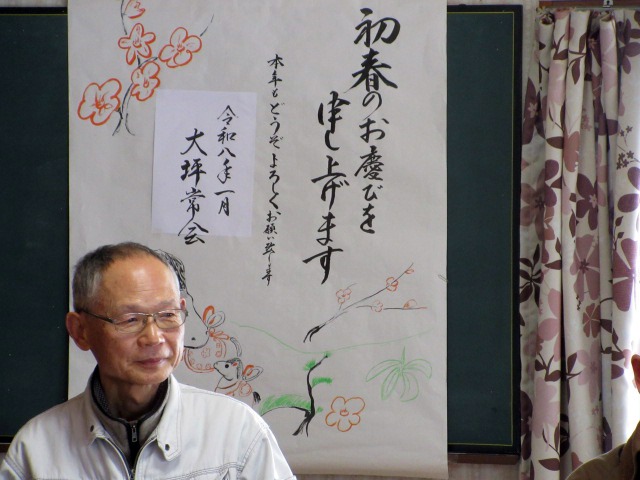 初春のお慶びを
申し上げます
本年もどうぞよろしくお願い致します
令和八年一月
大坪常会